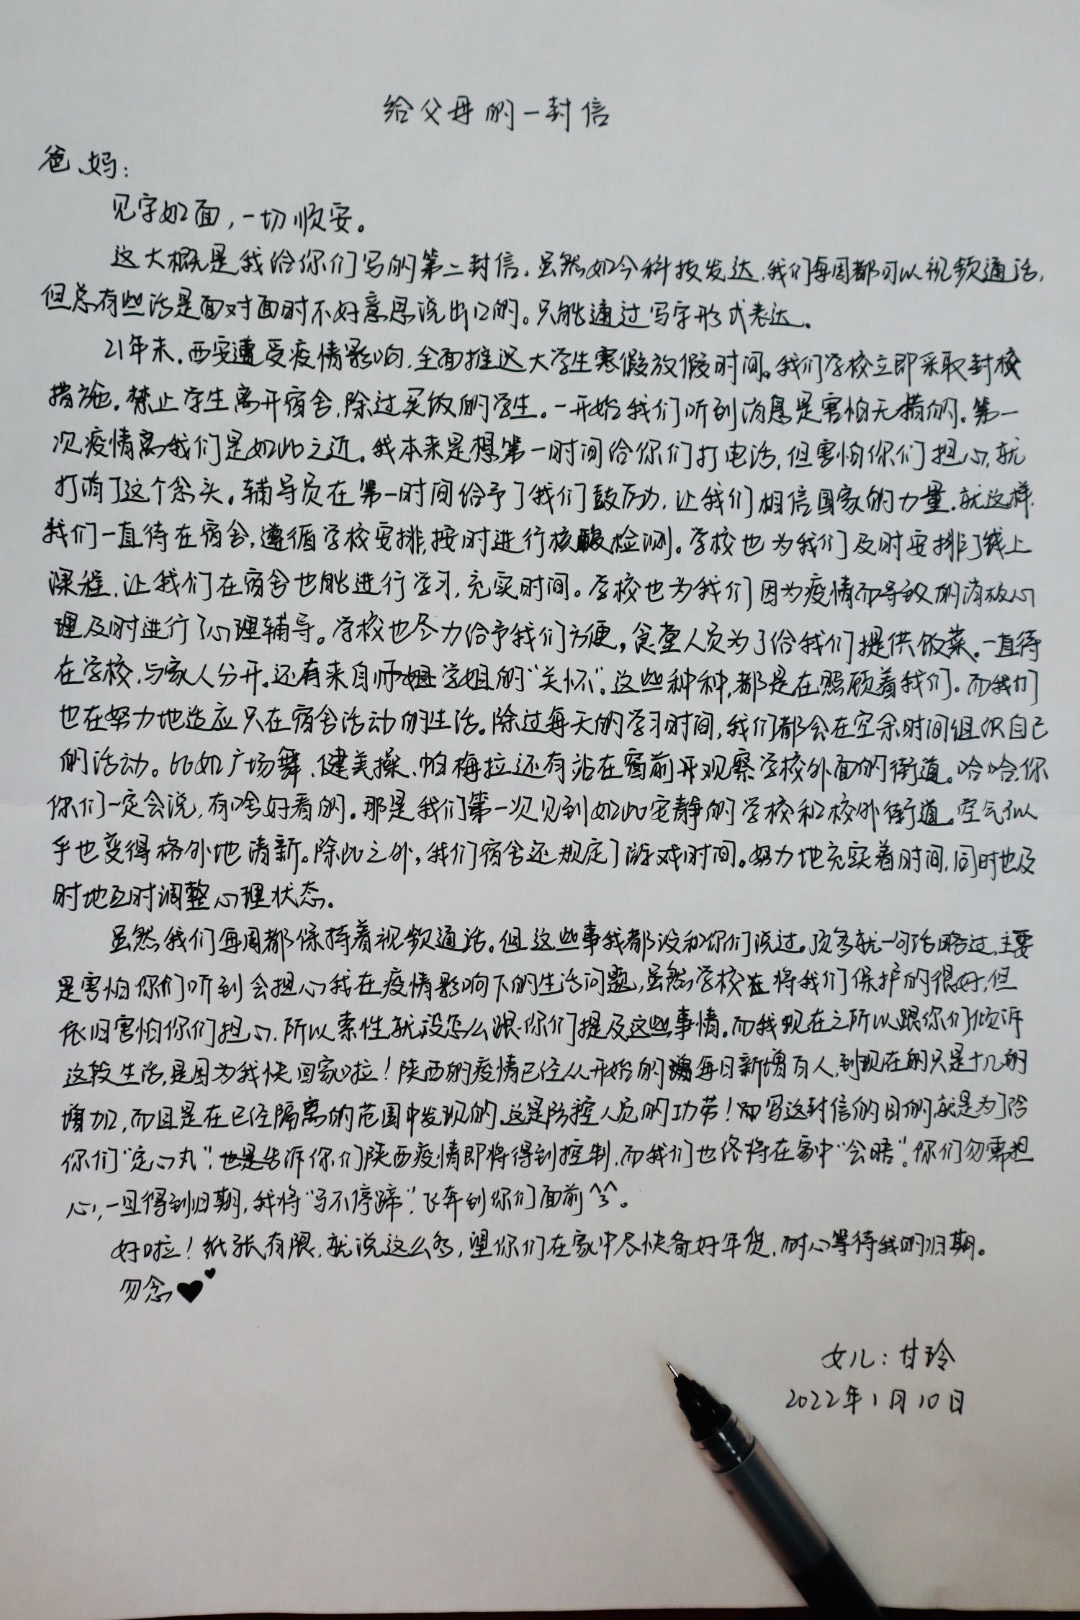 给父母的一封信
爸、妈：
见字如面，一切顺安。
这大概是我给你们写的第二封信。虽然如今科技发达，我们每周都可以视频通话，
但总有些话是面对面时不好意思说出口的。只能通过写字形式表达。
21年末，西安遭受疫情影响，全面推迟大学生寒假放假时间。我们学校立即采取封校
措施。禁止学生离开宿舍，除过买饭的学生。一开始我们听到消息是害怕无措的。第一
次疫情离我们是如此之近。我本来是想第一时间给你们打电话，但害怕你们担心，就
打消了这个念头。辅导员在第一时间给予了我们鼓励，让我们相信国家的力量。就这样，
我们一直待在宿舍，遵循学校安排，按时进行核酸检测。学校也为我们及时安排了线上
课程，让我们在宿舍也能进行学习，充实时间。学校也为我们因为疫情而导致的消极心
理及时进行了心理辅导。学校也尽力给予我们方便，食堂人员为了给我们提供饭菜，一直待
在学校，与家人分开。还有来自师姐学姐的“关怀”。这些种种，都是在照顾着我们。而我们
也在努力地适应只在宿舍活动的生活。除过每天的学习时间，我们都会在空余时间组织自己
的活动。比如广场舞、健美操、帕梅拉还有站在窗前开观察学校外面的街道。哈哈，你
你们一定会说，有啥好看的。那是我们第一次见到如此安静的学校和校外街道。空气似
乎也变得格外地清新。除此之外，我们宿舍还规定了游戏时间。努力地充实着时间，同时也及
时地互时调整心理状态。
虽然我们每周都保持着视频通话。但这些事我都没和你们说过。顶多就一句话略过，主要
是害怕你们听到会担心我在疫情影响下的生活问题，虽然学校在将我们保护的很好，但
依旧害怕你们担心，所以索性就没怎么跟你们提及这些事情。而我现在之所以跟你们倾诉
这段生活，是因为我快回家啦！陕西的疫情已经从开始的每日新增百人，到现在的只是十几的
增加，而且是在已经隔离的范围中发现的。这是防控人员的功劳！而写这封信的目的就是为了给
你们“定心丸”。也是告诉你们陕西疫情即将得到控制，而我们也终将在家中“会晤”。你们勿需担
心，一旦得到归期，我将“马不停蹄”，飞奔到你们面前^3^。
好啦！纸张有限，就说这么多，望你们在家中尽快备好年货，耐心等待我的归期。
勿念♥♥
女儿：甘玲
2022年1月10日